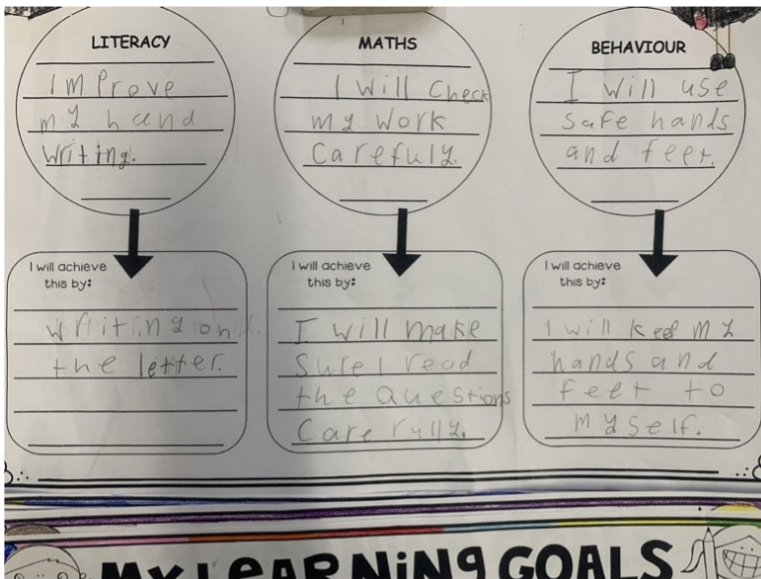 LITERACY
Improve
my hand
writing.
I will achieve
this by:
writing on
the letter.
MATHS
I will check
my work
Carefuly.
I will achieve
this by:
I will make
Sure I read
the Questions
Carefully.
BEHAVIOUR
I will use
safe hands
and feet.
I will achieve
this by:
I will keep my
hands and
feet to
myself.
MY LEARNING GOALS